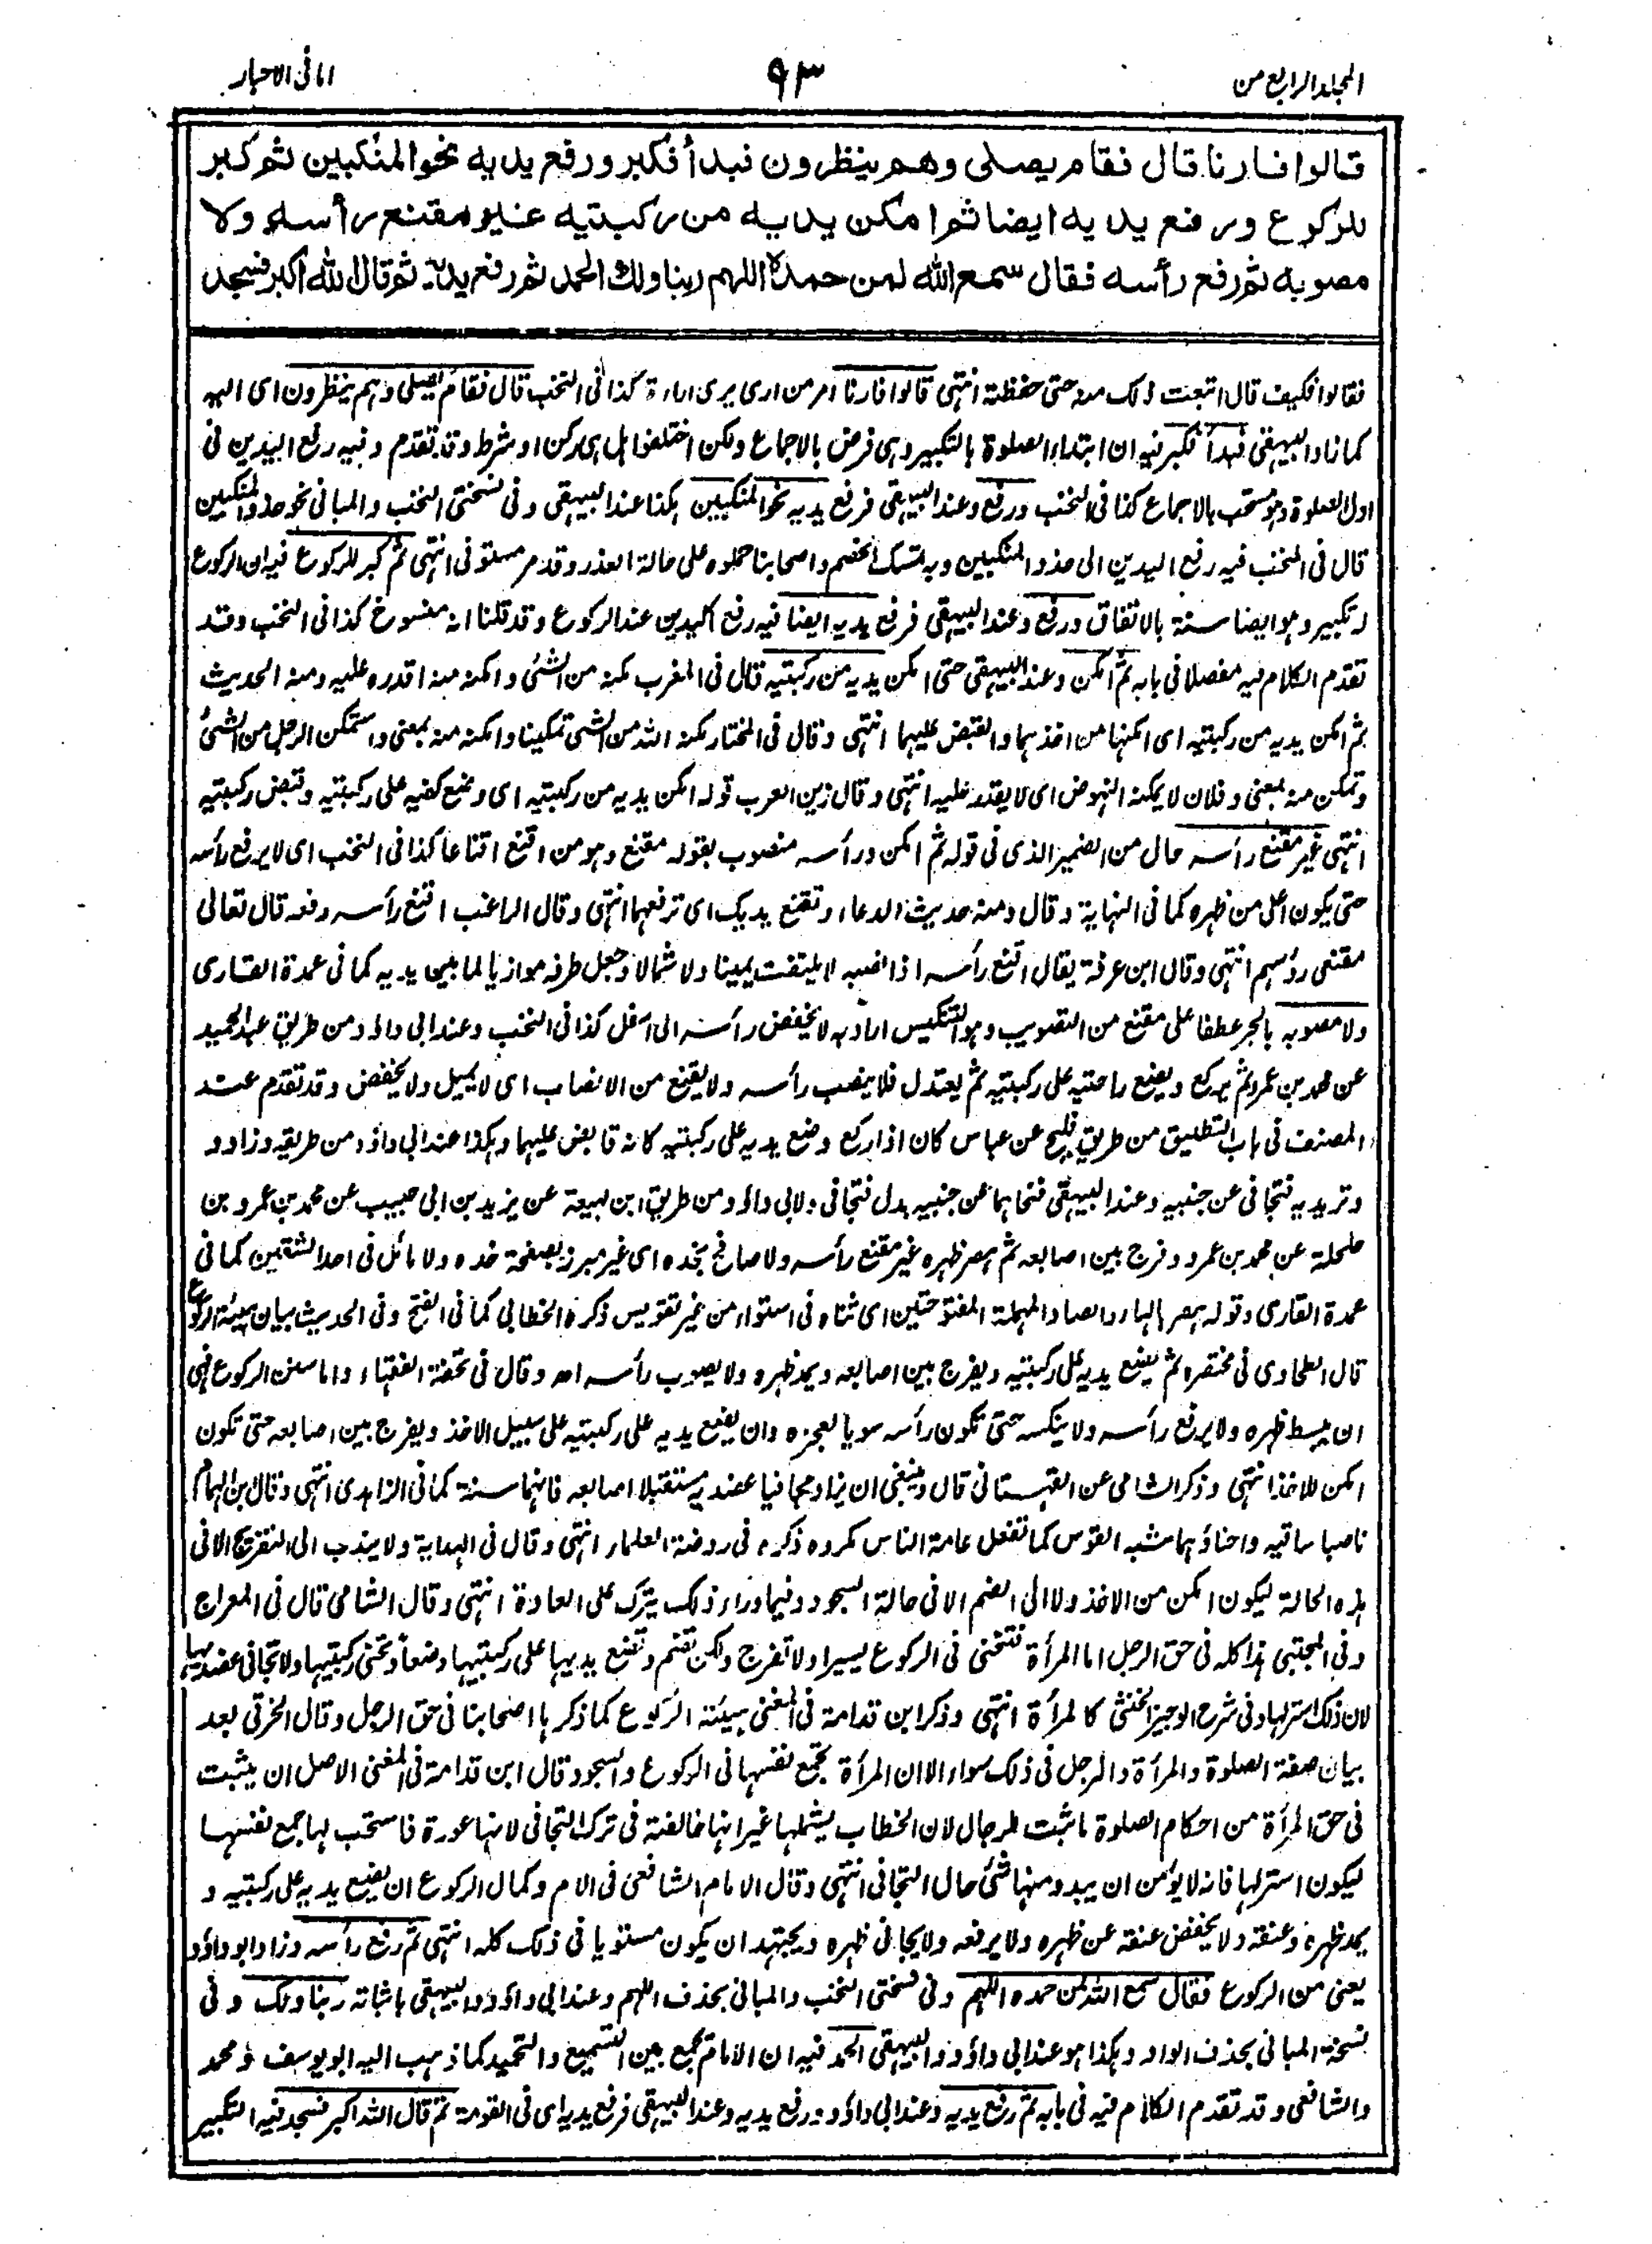 المجلد الرابع من
٩٣
امانى الاحبار
قالوا فارنا قال فقام يصلى وهم ينظرون فبدأ فكبر ورفع يديه نحو المنكبين ثم كبر
للركوع ورفع يديه ايضا ثم امكن يديه من ركبتيه غير مقنع رأسه ولا
مصوبه ثم رفع رأسه فقال سمع الله لمن حمده اللهم ربنا ولك الحمد ثم رفع يديه ثم قال الله اكبر فسجد
فقالوا فكيف قال اتبعت ذلك منه حتى حفظته انتهى قالوا فارنا امر من ارى يرى اراءة كذا فى النخب قال فقام يصلى وهم ينظرون اى اليه
كما زاد البيهقى فبدأ فكبر فيه ان ابتداء الصلوة بالتكبير وهى فرض بالاجماع ولكن اختلفوا هل هى ركن او شرط وقد تقدم وفيه رفع اليدين فى
اول الصلوة وهو مستحب بالاجماع كذا فى النخب ورفع وعند البيهقى فرفع يديه نحو المنكبين هكذا عند البيهقى وفى نسختى النخب والمبانى نحو حذو المنكبين
قال فى النخب فيه رفع اليدين الى حذو المنكبين وبه تمسك الخصم واصحابنا حملوه على حالة العذر وقد مر مستوفى انتهى ثم كبر للركوع فيه ان الركوع
له تكبير وهو ايضا سنة بالاتفاق ورفع وعند البيهقى فرفع يديه ايضا فيه رفع اليدين عند الركوع وقد قلنا انه منسوخ كذا فى النخب وقد
تقدم الكلام فيه مفصلا فى بابه ثم امكن وعند البيهقى حتى امكن يديه من ركبتيه قال فى المغرب مكنه من الشئ وامكنه منه اقدره عليه ومنه الحديث
ثم امكن يديه من ركبتيه اى امكنها من اخذهما والقبض عليهما انتهى وقال فى المختار مكنه الله من الشئ تمكينا وامكنه منه بمعنى واستمكن الرجل من الشئ
وتمكن منه بمعنى وفلان لا يمكنه النهوض اى لا يقدر عليه انتهى وقال زين العرب قوله امكن يديه من ركبتيه اى وضع كفيه على ركبتيه وقبض ركبتيه
انتهى غير مقنع رأسه حال من الضمير الذى فى قوله ثم امكن ورأسه منصوب بقوله مقنع وهو من اقنع اقناعا كذا فى النخب اى لا يرفع رأسه
حتى يكون اعلى من ظهره كما فى النهاية وقال ومنه حديث الدعاء وتقنع يديك اى ترفعهما انتهى وقال الراغب اقنع رأسه رفعه قال تعالى
مقنعى رؤسهم انتهى وقال ابن عرفة يقال اقنع رأسه اذا نصبه لا يلتفت يمينا ولا شمالا وجعل طرفه موازيا لما بين يديه كما فى عمدة القارى
ولا مصوبه بالجر عطفا على مقنع من التصويب وهو التنكيس اراد به لا يخفض رأسه الى اسفل كذا فى النخب وعند ابى داود من طريق عبد الحميد
عن محمد بن عمرو ثم يركع ويضع راحتيه على ركبتيه ثم يعتدل فلا ينصب رأسه ولا يقنع من الانصاب اى لا يميل ولا يخفض وقد تقدم عند
المصنف فى باب التطبيق من طريق فليح عن عباس كان اذا ركع وضع يديه على ركبتيه كانه قابض عليهما وهكذا عند ابى داؤد من طريقه وزاد و
وتر يديه فتجافى عن جنبيه وعند البيهقى فنحاهما عن جنبيه بدل فتجافى ولابى داؤد ومن طريق ابن لهيعة عن يزيد بن ابى حبيب عن محمد بن عمرو بن
حلحلة عن محمد بن عمرو وفرج بين اصابعه ثم هصر ظهره غير مقنع رأسه ولا صافح بخده اى غير مبرز بصفحة خده ولا مائل فى احد الشقين كما فى
عمدة القارى وقوله هصر بالهاء والصاد المهملة المفتوحتين اى ثناه فى استواء من غير تقويس ذكره الخطابى كما فى الفتح وفى الحديث بيان هيئة الركوع
قال الطحاوى فى مختصره ثم يضع يديه على ركبتيه ويفرج بين اصابعه ويمد ظهره ولا يصوب رأسه اه وقال فى تحفة الفقهاء واما سنن الركوع فهى
ان يبسط ظهره ولا يرفع رأسه ولا ينكسه حتى تكون رأسه سويا لعجزه وان يضع يديه على ركبتيه على سبيل الاخذ ويفرج بين اصابعه حتى تكون
امكن للاخذ انتهى وذكر الشامى عن القهستانى قال وينبغى ان يزاد مجافيا عضديه مستقبلا اصابعه فانهما سنة كما فى الزاهدى انتهى وقال ابن الهمام
ناصبا ساقيه واحناؤهما شبه القوس كما تفعل عامة الناس مكروه ذكره فى روضة العلماء انتهى وقال فى الهداية ولا يندب الى التفريج الا فى
هذه الحالة ليكون امكن من الاخذ ولا الى الضم الا فى حالة السجود وفيما وراء ذلك يترك على العادة انتهى وقال الشامى قال فى المعراج
وفى المجتبى هذا كله فى حق الرجل اما المرأة فتنحنى فى الركوع يسيرا ولا تفرج ولكن تضم وتضع يديها على ركبتيها وضعا وتحنى ركبتيها ولا تجافى عضديها
لان ذلك استر لها وفى شرح الوجيز الخنثى كالمرأة انتهى وذكر ابن قدامة فى المغنى هيئة الركوع كما ذكرها اصحابنا فى حق الرجل وقال الخرقى بعد
بيان صفة الصلوة والمرأة والرجل فى ذلك سواء الا ان المرأة تجمع نفسها فى الركوع والسجود قال ابن قدامة فى المغنى الاصل ان يثبت
فى حق المرأة من احكام الصلوة ما ثبت للرجال لان الخطاب يشملها غير انها خالفته فى ترك التجافى لانها عورة فاستحب لها جمع نفسها
ليكون استر لها فانه لا يؤمن ان يبدو منها شئ حال التجافى انتهى وقال الامام الشافعى فى الام وكمال الركوع ان يضع يديه على ركبتيه و
يمد ظهره وعنقه ولا يخفض عنقه عن ظهره ولا يرفعه ولا يجافى ظهره ويجتهد ان يكون مستويا فى ذلك كله انتهى ثم رفع رأسه وزاد ابو داؤد
يعنى من الركوع فقال سمع الله لمن حمده اللهم وفى نسختى النخب والمبانى بحذف اللهم وعند ابى داؤد والبيهقى باثباته ربنا ولك وفى
نسخة المبانى بحذف الواو وهكذا هو عند ابى داؤد والبيهقى الحمد فيه ان الامام يجمع بين التسميع والتحميد كما ذهب اليه ابو يوسف ومحمد
والشافعى وقد تقدم الكلام فيه فى بابه ثم رفع يديه وعند ابى داؤد ورفع يديه وعند البيهقى فرفع يديه اى فى القومة ثم قال الله اكبر فسجد فيه التكبير